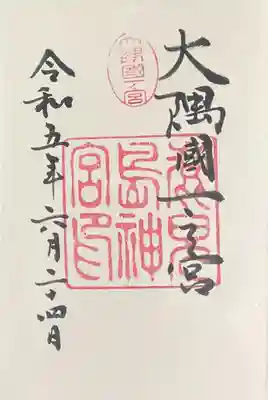 大隅國一之宮
大隅國一宮
鹿兒
島神
宮印
令和五年六月二十四日